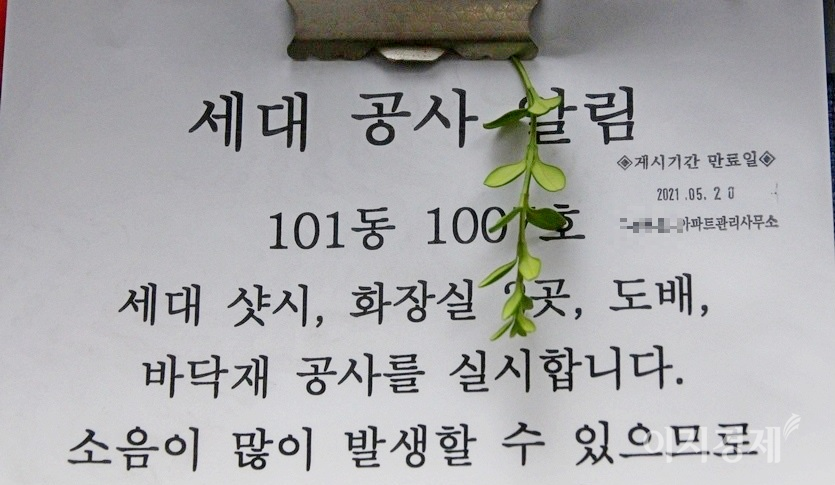 세대 공사 알림
◈게시기간 만료일◈
2021.05.20
아파트관리사무소
101동 호
세대 샷시, 화장실 도배,
바닥재 공사를 실시합니다.
소음이 많이 발생할 수 있으므로
이지경제